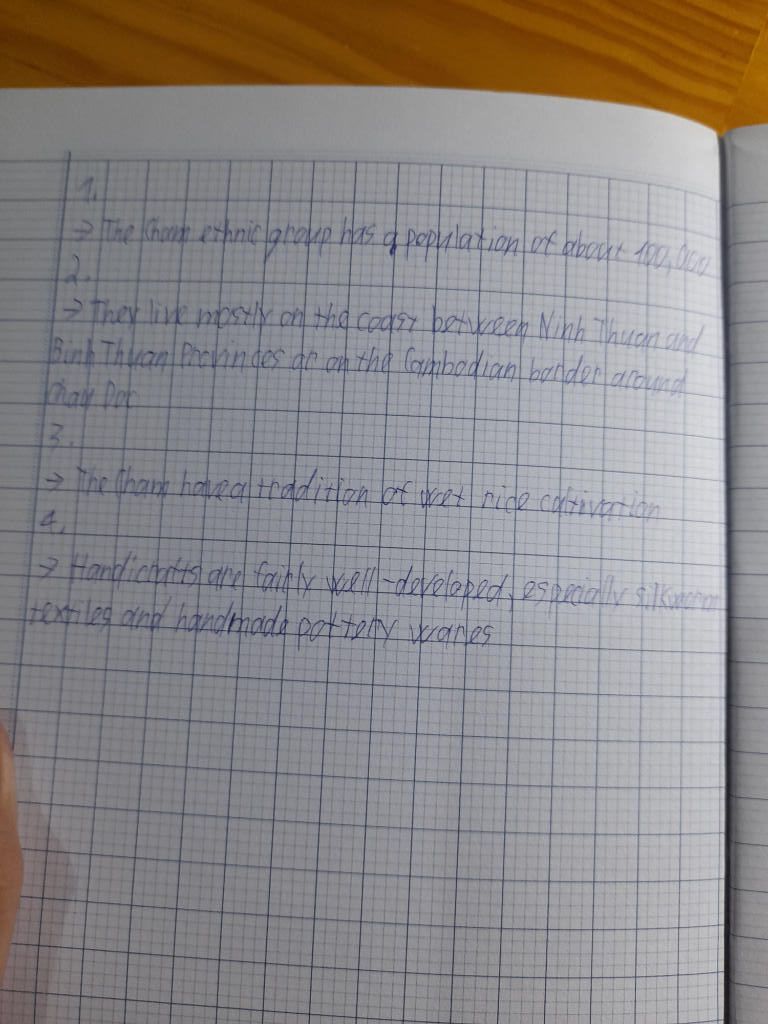 1.
→ The Cham ethnic group has a population of about 100,000
2.
→ They live mostly on the coast between Ninh Thuan and
Binh Thuan Provinces or on the Cambodian border around
Chau Doc
3.
→ The Cham have a tradition of wet rice cultivation
4.
→ Handicrafts are fairly well-developed, especially silk
textiles and handmade pottery wares